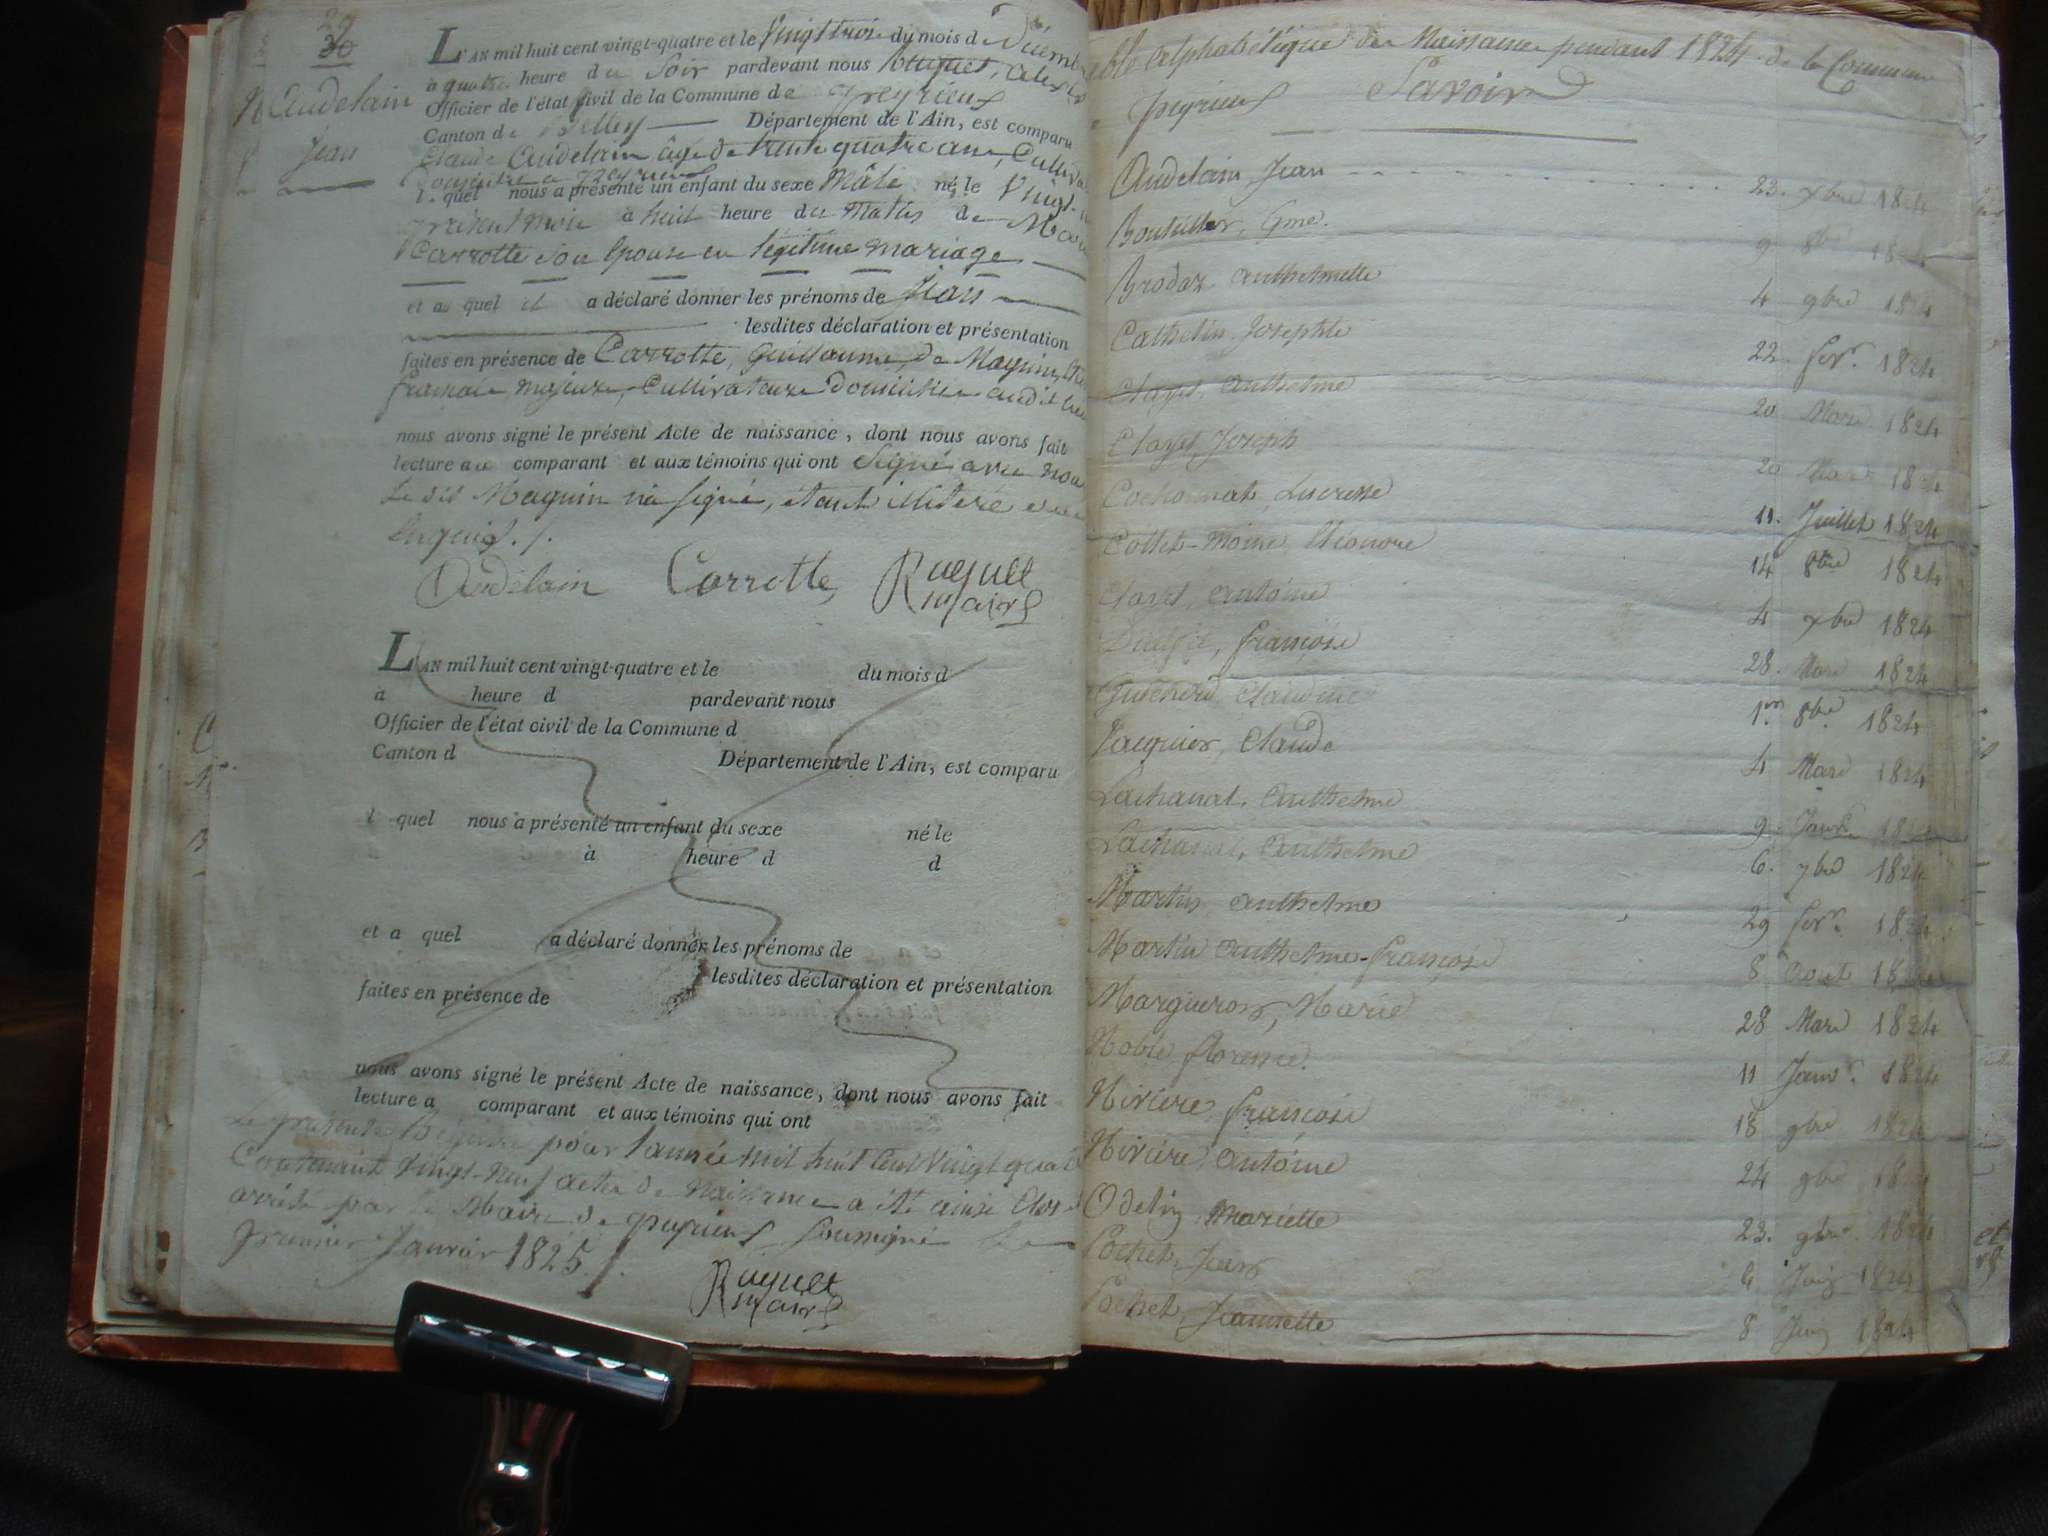 29
30
N Audelain
Jean
L'AN mil huit cent vingt-quatre et le Vingt trois du mois de Décemb
à quatre heure du Soir pardevant nous Ruguet,
Officier de l'état civil de la Commune de Peyrieu
Canton de Belley Département de l'Ain, est comparu
Claude Audelain âgé de trente quatre ans, Cultiva
l quel nous a présenté un enfant du sexe Mâle né le Vingt
présent mois à huit heure du Matin de
Carrotte son Epouse en légitime mariage
et au quel il a déclaré donner les prénoms de Jean
lesdites déclaration et présentation
faites en présence de Carrotte, Guillaume, de Maguin,
françois majeurs, Cultivateurs Domiciliés audit
nous avons signé le présent Acte de naissance, dont nous avons fait
lecture au comparant et aux témoins qui ont Signé avec nou
Le dit Maguin n'a signé, étant illitéré
Enquis ./.
Audelain Carrotte Ruguet
maire
L'AN mil huit cent vingt-quatre et le du mois d
à heure d pardevant nous
Officier de l'état civil de la Commune d
Canton d Département de l'Ain, est comparu
l quel nous a présenté un enfant du sexe né le
à heure d d
et a quel a déclaré donner les prénoms de
lesdites déclaration et présentation
faites en présence de
nous avons signé le présent Acte de naissance, dont nous avons fait
lecture a comparant et aux témoins qui ont
Le présent Régistre pour l'année mil huit Cent Vingt quat
Contenant Vingt-neuf actes de Naissance a été ainsi Clos
arrêté par le Maire de peyrieu Soussigné le
premier Janvier 1825 ./.
Ruguet
maire
able Alphabétique des Naissances pendant 1824 de la Commune
peyrieu Savoir
Audelain Jean 23. xbre 1824
Bouhillier, Gme. 9 8bre 1824
Brodaz anthelmette 4 9bre 1824
Cathelin Josephte 22. fevr. 1824
Clayet, anthelme 20 Mars 1824
Clayet, Joseph 20 Mars 1824
Cochonat, Lucresse 11. Juillet 1824
Collet-Moine Eléonore 14 8bre 1824
Clayet, antoine 4 xbre 1824
françoise 28. Mars 1824
Claudine 1er 8bre 1824
Jaquier, Claude 4 Mars 1824
Lachanal, anthelme 9 Janvier 1824
Lachanal, anthelme 6. 7bre 1824
Martin anthelme 29 fevr. 1824
Martin anthelme-françois 8 Aout 1824
Margueron, Marie 28 Mars 1824
Noble florence. 11 Janvr. 1824
Nivière françoise 18 9bre 1824
Nivière antoine 24 9bre 1824
Odelin Mariette 23. 9bre 1824
Pochet, Jean 4 Juin 1824
Pochet, Jeannette 8 Juin 1824